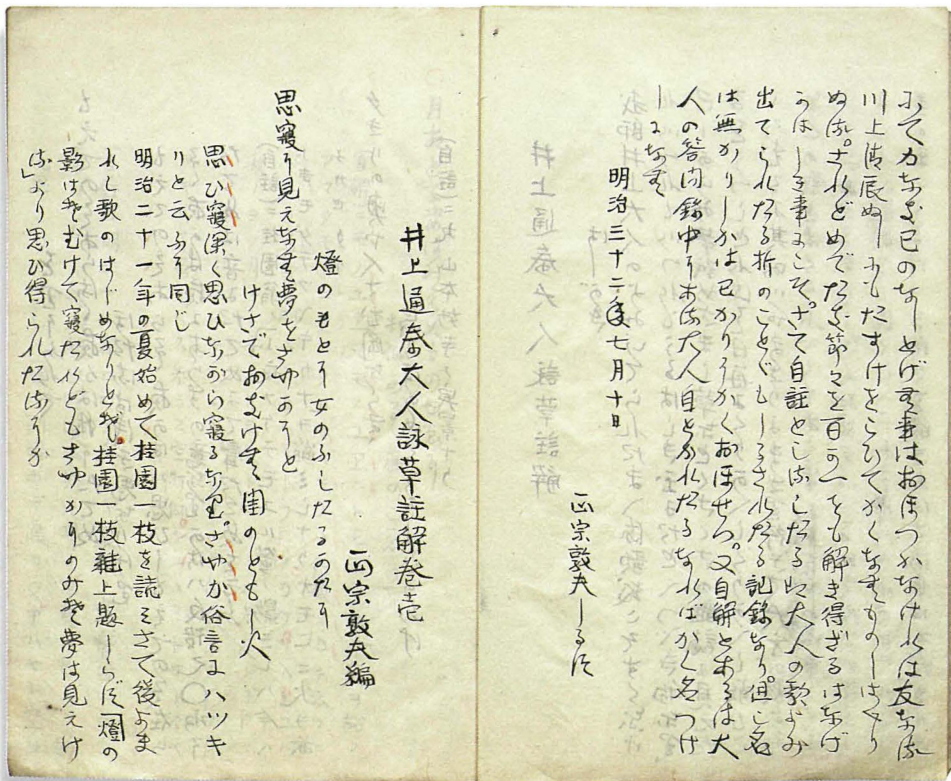 みて力なき己のなしとげむ事はおほつかなけれは友なる
川上清辰ぬしにもたすけをこひてかくなむものしはへり
ぬる。されどめでたき節々を百の一をも解き得ざるはなげ
かはしき事にこそ。さて自註としるしたるは大人の歌よみ
出でられたる折のことゞもしるされたる記録なり。但し名
は無かりしかは己かりにかくおほせつ。又自解とあるは大
人の答問録中にある大人自とかれたるなればかく名つけ
しになむ
明治三十二年七月十日
正宗敦夫しるす
井上通泰大人詠草註解巻壱
正宗敦夫編
燈のもとに女のふしたるかたに
思寝に見えなむ夢をさやかにと
けさでおむけむ閨のとも火
思ひ寝深く思ひながら寝るなり。さやか俗言にハツキ
リと云ふに同じ
明治二十一年の夏始めて桂園一枝を読みさて後よま
れし歌のはじめなりとぞ。桂園一枝雑上題しらず「燈の
影はそむけて寝たれどもさやかにのみぞ夢は見えけ
る」より思ひ得られたるにか